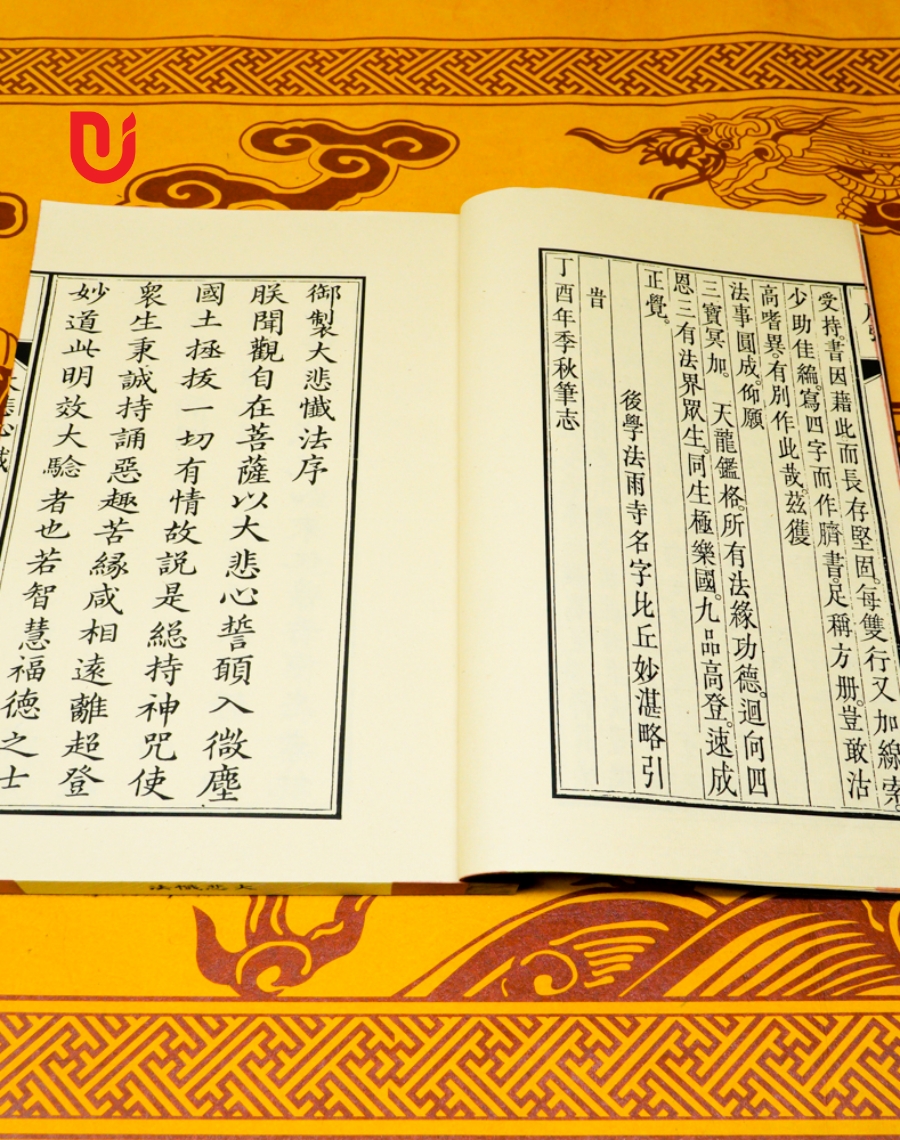 受持。書因藉此而長存堅固。每雙行又加線索
少助佳編。寫四字而作臍書。足稱方册。豈敢沽
高嗜異。有別作此哉。茲獲
法事圓成。仰願
三寶冥加。　天龍鑑格。所有法緣功德。迴向四
恩三有法界眾生。同生極樂國。九品高登。速成
正覺。
後學法雨寺名字比丘妙湛略引
旹
丁酉年季秋筆志
御製大悲懺法序
朕聞觀自在菩薩以大悲心誓願入微塵
國土拯拔一切有情故説是緫持神咒使
衆生秉誠持誦惡趣苦縁咸相遠離超登
妙道此明效大驗者也若智慧福德之士
大悲懺法